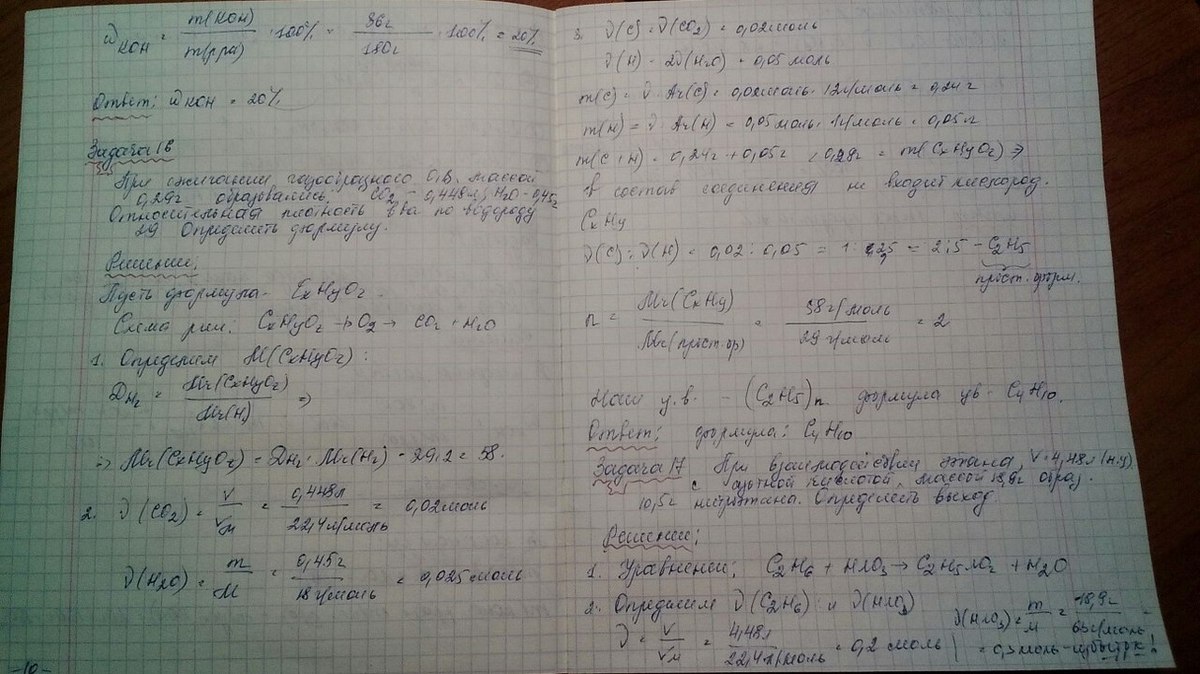 ω KOH = m(KOH) / m(р-ра) · 100% = 36г / 180г · 100% = 20%
Ответ: ω KOH = 20%
Задача 16
При сжигании газообразного О.В. массой
0,29г образовались CO2 - 0,448л, H2O - 0,45г
Относительная плотность в-ва по водороду
29 Определить формулу.
Решение:
Пусть формула - CxHyOz.
Схема р-ии: CxHyOz + O2 → CO2 + H2O
1. Определим M(CxHyOz):
DH2 = Mr(CxHyOz) / Mr(H2) ⇒
⇒ Mr(CxHyOz) = DH2 · Mr(H2) = 29·2 = 58.
2. ν(CO2) = V / Vм = 0,448л / 22,4л/моль = 0,02моль
ν(H2O) = m / M = 0,45г / 18г/моль = 0,025моль
-10-
3. ν(C) = ν(CO2) = 0,02моль
ν(H) = 2ν(H2O) = 0,05 моль
m(C) = ν · Ar(C) = 0,02моль · 12г/моль = 0,24г
m(H) = ν · Ar(H) = 0,05моль · 1г/моль = 0,05г
m(C+H) = 0,24г + 0,05г = 0,29г = m(CxHyOz) ⇒
в состав соединения не входит кислород.
CxHy
ν(C) : ν(H) = 0,02 : 0,05 = 1 : 2,5 = 2:5 - C2H5
прост. форм.
n = Mr(CxHy) / Mr(прост.ф) = 58г/моль / 29г/моль = 2
Наш у.в. - (C2H5)n формула ув - C4H10.
Ответ: формула: C4H10
Задача 17 При взаимодействии этана, V=4,48л (н.у)
с азотной кислотой, массой 18,9г образ.
10,5г нитроэтана. Определить выход.
Решение:
1. Уравнение: C2H6 + HNO3 → C2H5NO2 + H2O
2. Определим ν(C2H6) и ν(HNO3)
ν = V / Vм = 4,48л / 22,4л/моль = 0,2 моль
ν(HNO3) = m / M = 18,9г / 63г/моль =
= 0,3моль - избыток!